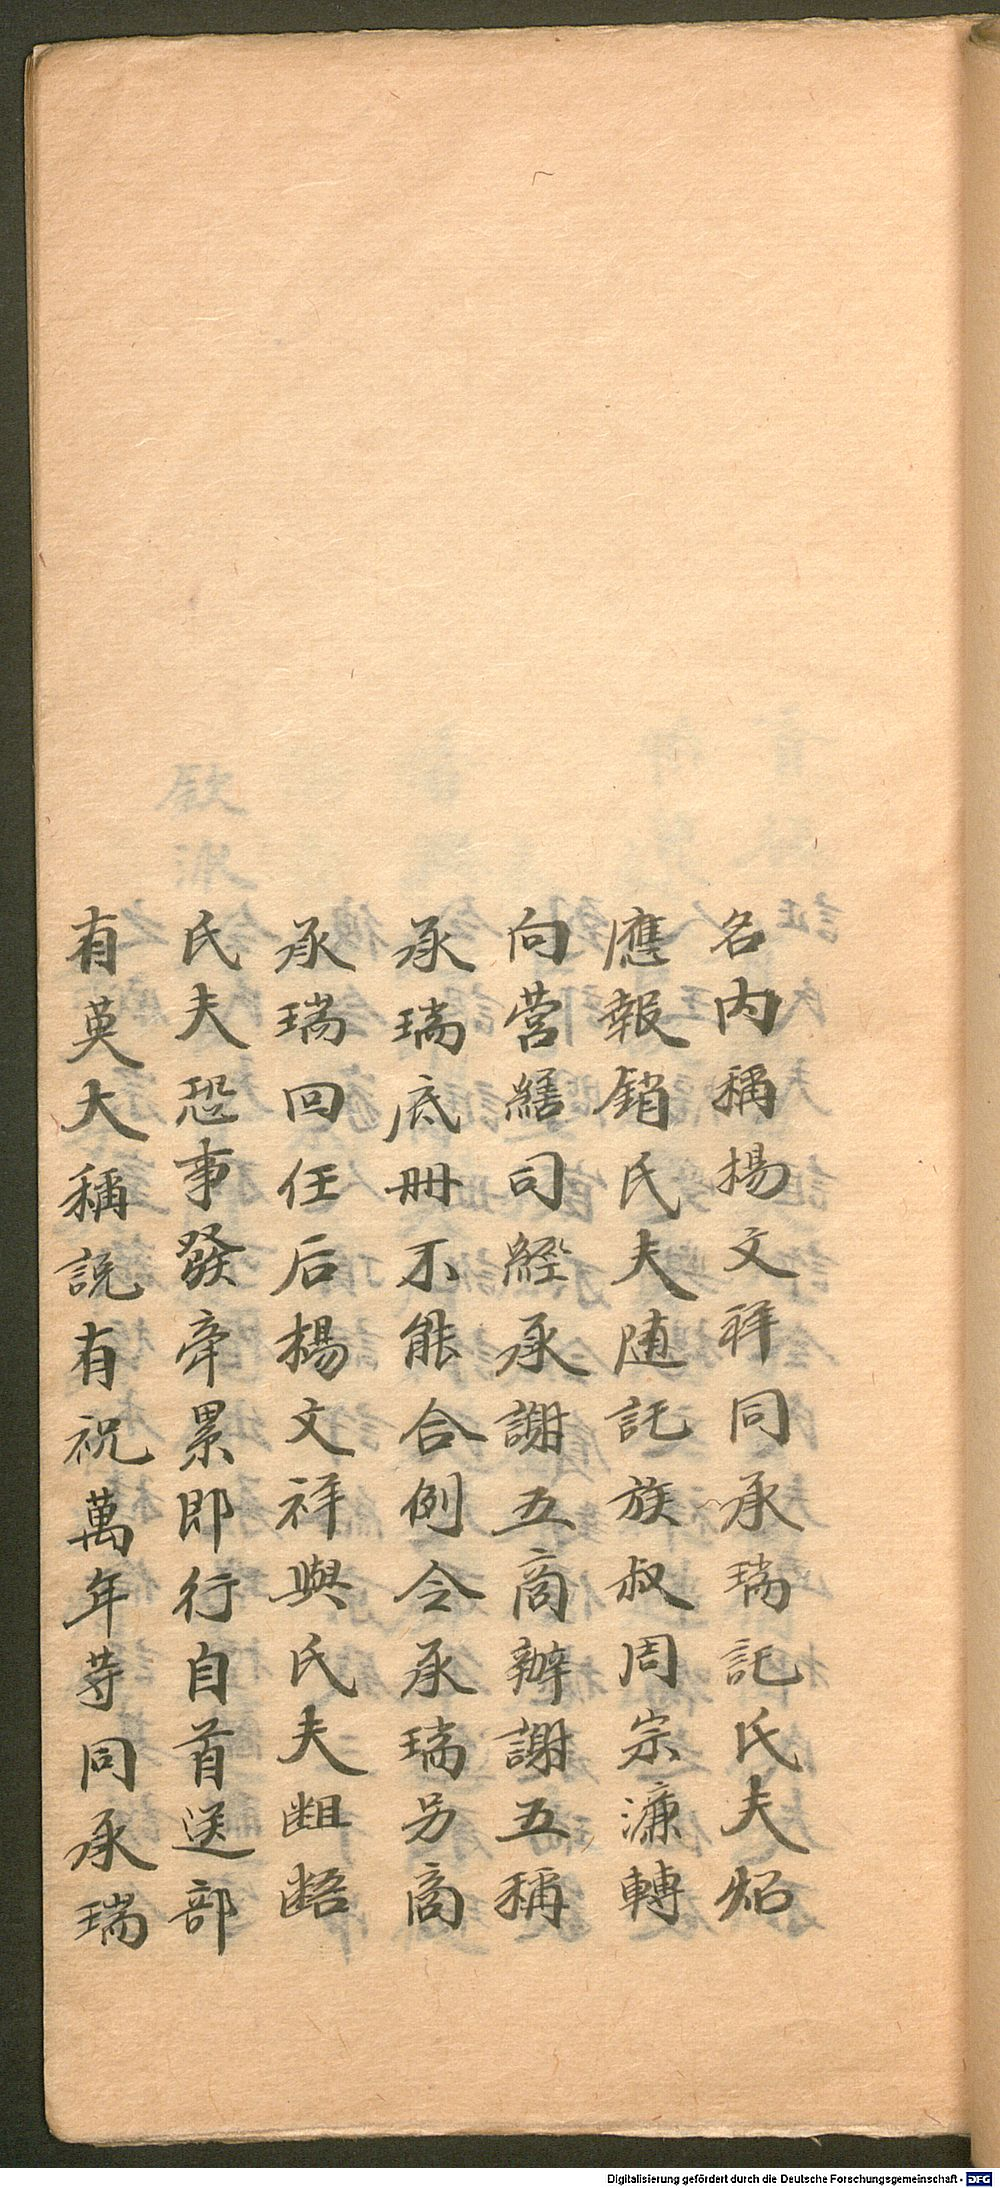 名内稱楊文祥同承瑞託氏夫炤
應報銷氏夫随託族叔周宗濂轉
向营繕司經承謝五商辦謝五稱
承瑞底冊不能合例令承瑞另商
承瑞回任后楊文祥與氏夫齟齬
氏夫恐事發牽累即行自首送部
有英大稱説有祝萬年等同承瑞
Digitalisierung gefördert durch die Deutsche Forschungsgemeinschaft - DFG